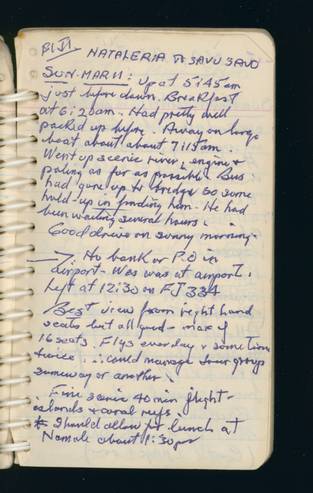 FIJI NATALERIA to SAVU SAVU
SUN. MAR 11: up at 5:45am
just before dawn. Breakfast
at 6:20am. Had pretty well
packed up before. Away on large
boat about about 7:15am.
Went up scenic river, engine &
poling as far as possible. Bus
had gone up to bridge so some
hold-up in finding him. He had
been waiting several hours.
Good drive on sunny morning.
→ No bank or P.O in
airport - Wes was at airport.
Left at 12:30 on FJ 334
Best view from right hand
seats but all good - max of
16 seats. Flys everyday & sometimes
twice ∴ could manage tour groups
someway or another.
Fine scenic 40 min flight -
islands & coral reefs.
* Should allow for lunch at
about 1:30pm